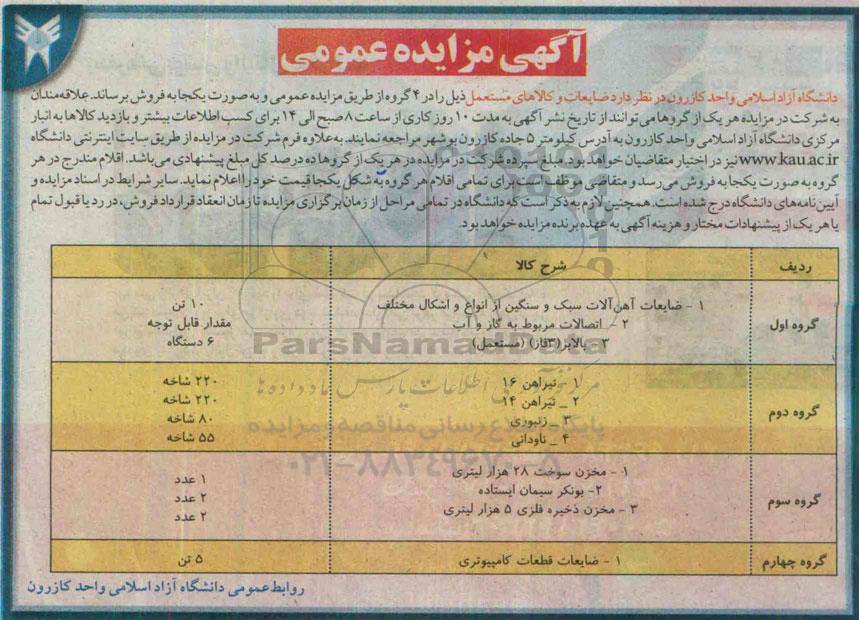 آگهی مزایده عمومی
دانشگاه آزاد اسلامی واحد کازرون در نظر دارد ضایعات و کالاهای مستعمل ذیل را در ۴ گروه از طریق مزایده عمومی و به صورت یکجا به فروش برساند. علاقه‌مندان
به شرکت در مزایده هر یک از گروها می‌توانند از تاریخ نشر آگهی به مدت ۱۰ روز کاری از ساعت ۸ صبح الی ۱۴ برای کسب اطلاعات بیشتر و بازدید کالاها به انبار
مرکزی دانشگاه آزاد اسلامی واحد کازرون به آدرس کیلومتر ۵ جاده کازرون بوشهر مراجعه نمایند. به‌علاوه فرم شرکت در مزایده از طریق سایت اینترنتی دانشگاه
www.kau.ac.ir نیز در اختیار متقاضیان خواهد بود. مبلغ سپرده شرکت در مزایده در هر یک از گروها ده درصد کل مبلغ پیشنهادی می‌باشد. اقلام مندرج در هر
گروه به صورت یکجا به فروش می‌رسد و متقاضی موظف است برای تمامی اقلام هر گروه به شکل یکجا قیمت خود را اعلام نماید. سایر شرایط در اسناد مزایده و
آیین‌نامه‌های دانشگاه درج شده است. همچنین لازم به ذکر است که دانشگاه در تمامی مراحل از زمان برگزاری مزایده تا زمان انعقاد قرارداد فروش، در رد یا قبول تمام
یا هر یک از پیشنهادات مختار و هزینه آگهی به عهده برنده مزایده خواهد بود.
ردیف شرح کالا
گروه اول
۱ - ضایعات آهن‌آلات سبک و سنگین از انواع و اشکال مختلف ۱۰ تن
۲ - اتصالات مربوط به گاز و آب مقدار قابل توجه
۳ - بالابر(۳فاز) (مستعمل) ۶ دستگاه
گروه دوم
۱ _ تیرآهن ۱۶ ۲۲۰ شاخه
۲ _ تیرآهن ۱۴ ۲۲۰ شاخه
۳ _ زنبوری ۸۰ شاخه
۴ _ ناودانی ۵۵ شاخه
گروه سوم
۱ - مخزن سوخت ۲۸ هزار لیتری ۱ عدد
۲- بونکر سیمان ایستاده ۲ عدد
۳ - مخزن ذخیره فلزی ۵ هزار لیتری ۲ عدد
گروه چهارم ۱ - ضایعات قطعات کامپیوتری ۵ تن
روابط عمومی دانشگاه آزاد اسلامی واحد کازرون
ParsNamadData
پایگاه اطلاع رسانی مناقصه و مزایده